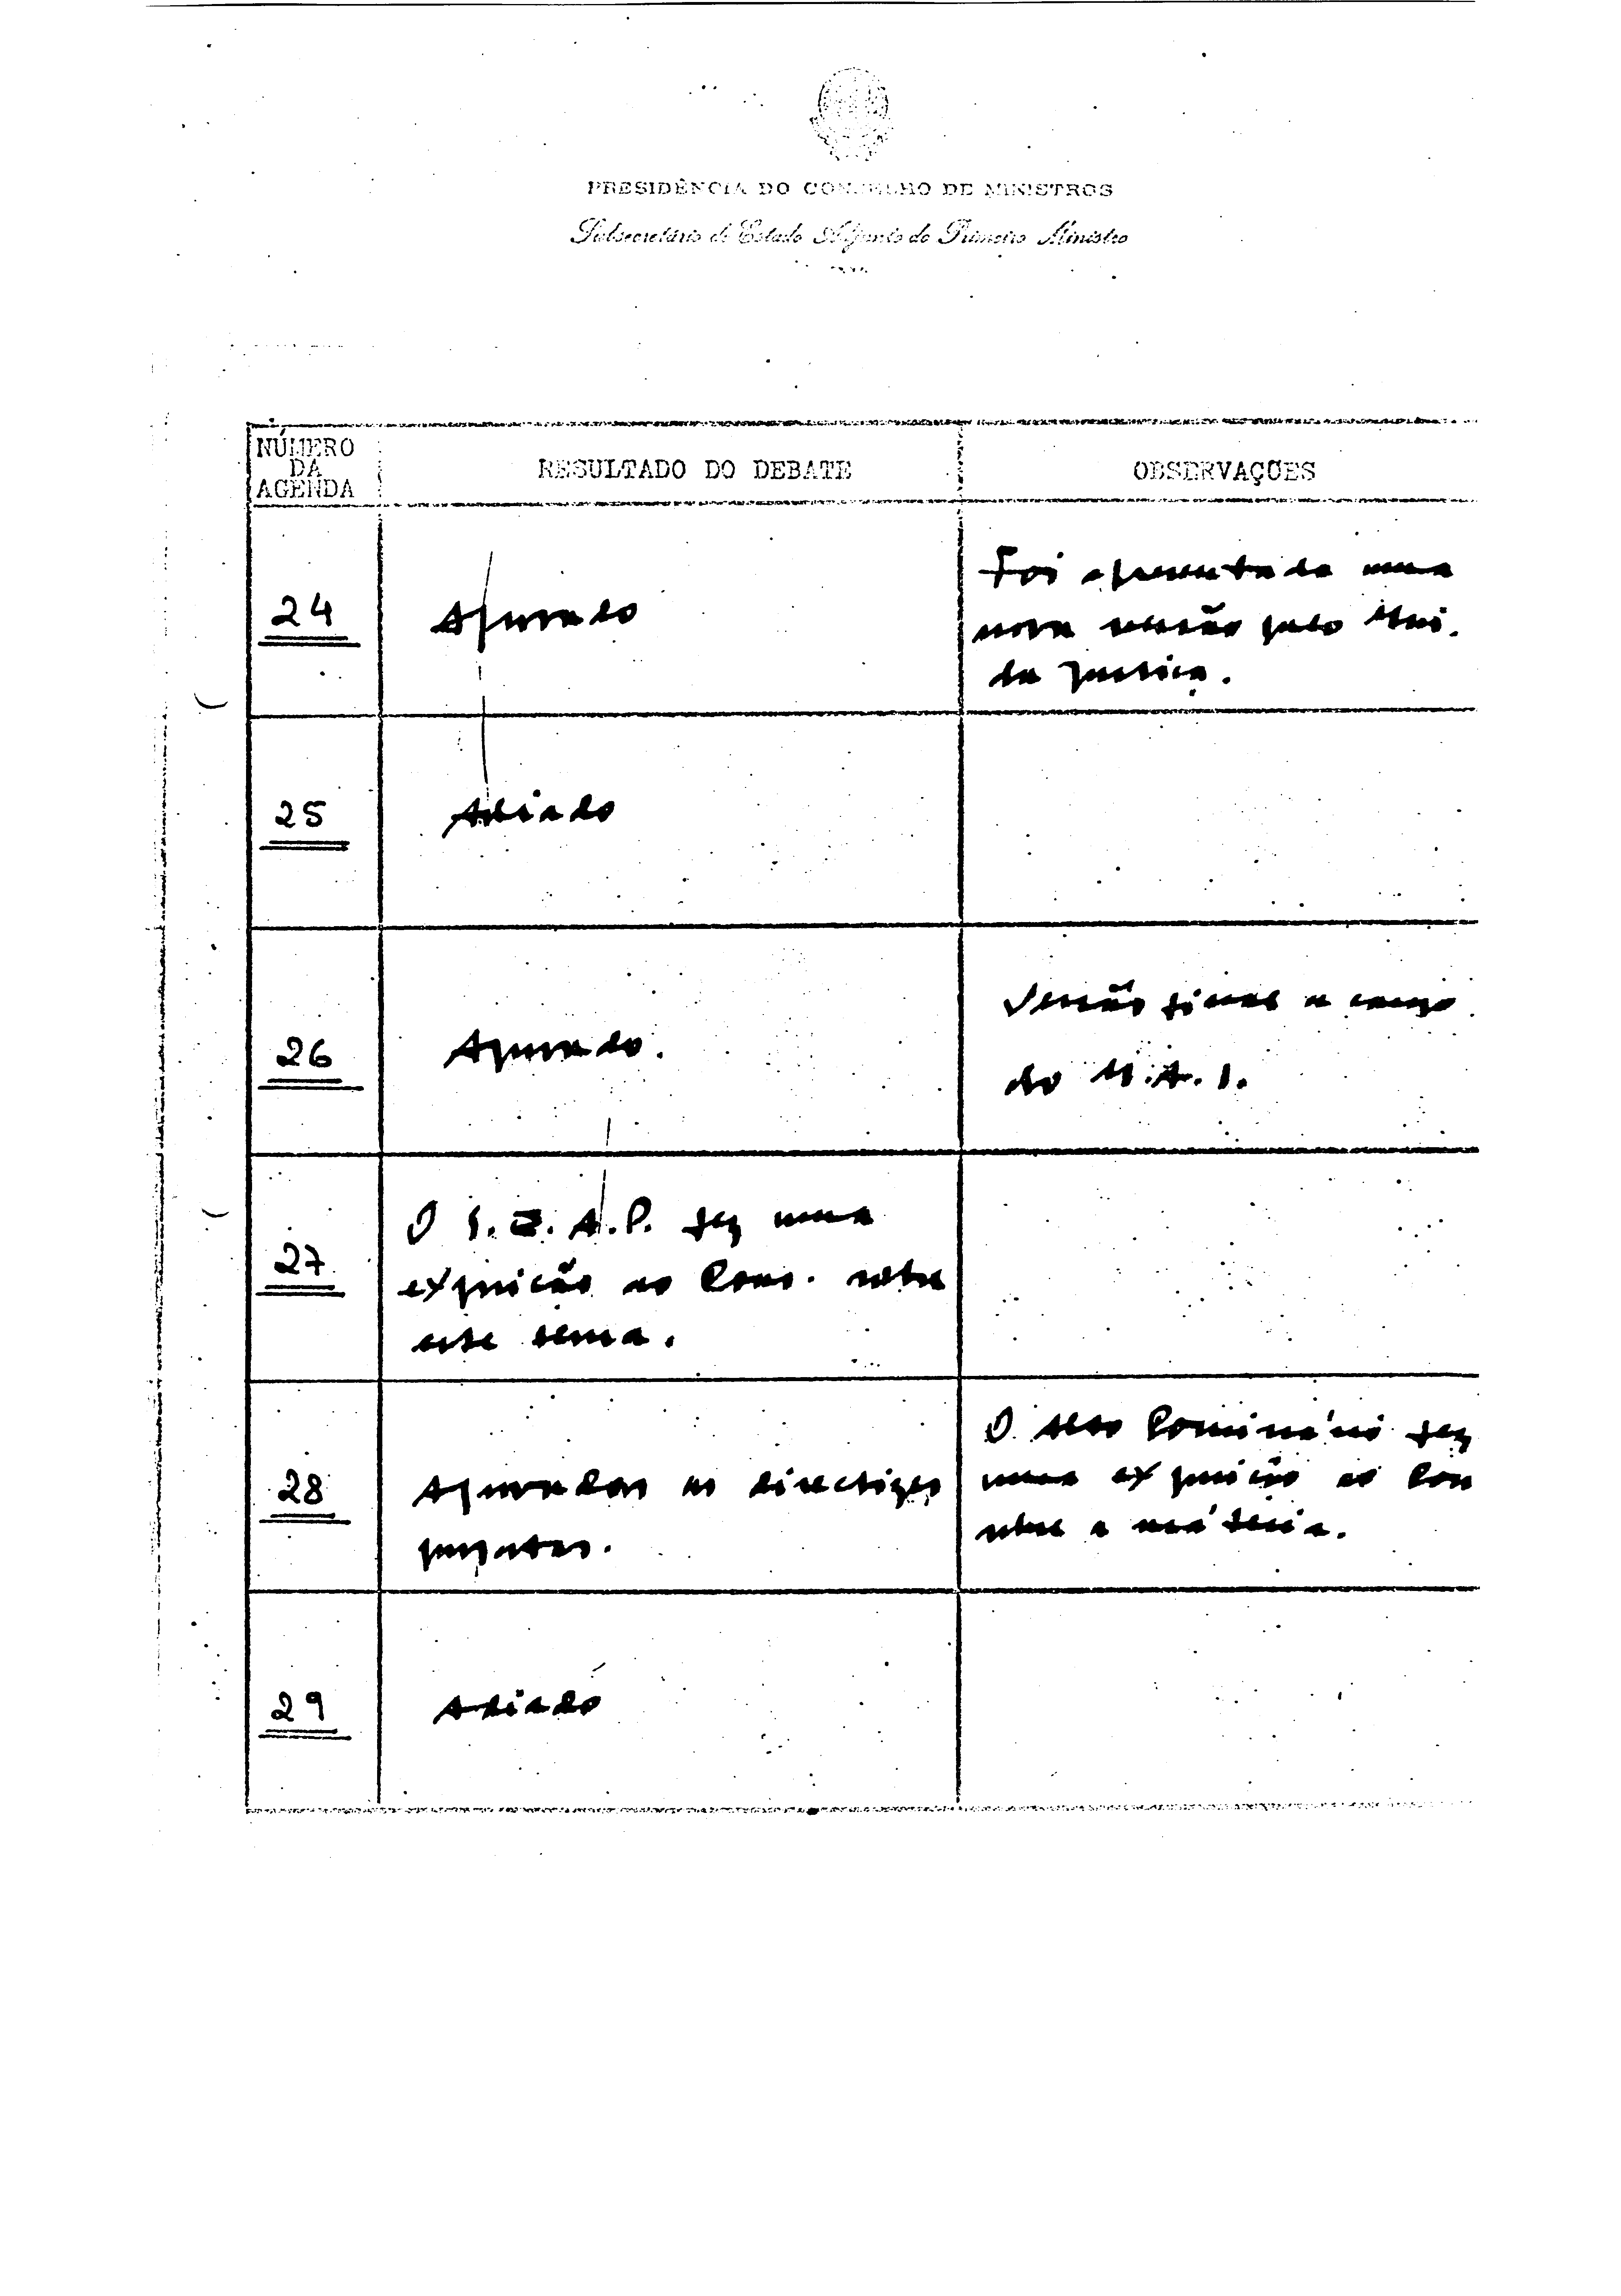 PRESIDÊNCIA DO CONSELHO DE MINISTROS
Subsecretário de Estado Adjunto do Primeiro Ministro
NÚMERO
DA
AGENDA
RESULTADO DO DEBATE
OBSERVAÇÕES
24
Aprovado
Foi apresentada uma
nova versão pelo Min.
da Justiça.
25
Adiado
26
Aprovado.
Versão final a cargo
do M.A.I.
27
O S.E.A.P. fez uma
exposição ao Cons. sobre
este tema.
28
Aprovadas as directizes
propostas.
O Alto Comissário fez
uma exposição ao Con
sobre a matéria.
29
Adiado